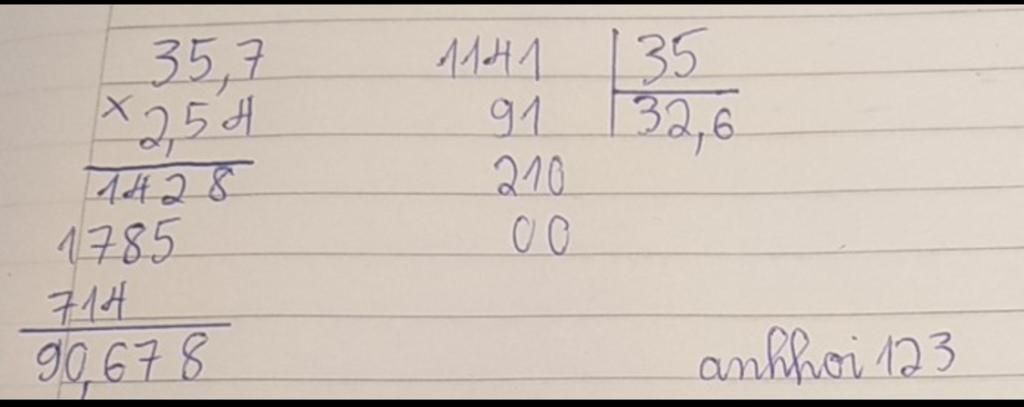 35,7
× 2,54
1428
1785
714
90,678
1141 | 35
91 32,6
210
00
anhhoi 123